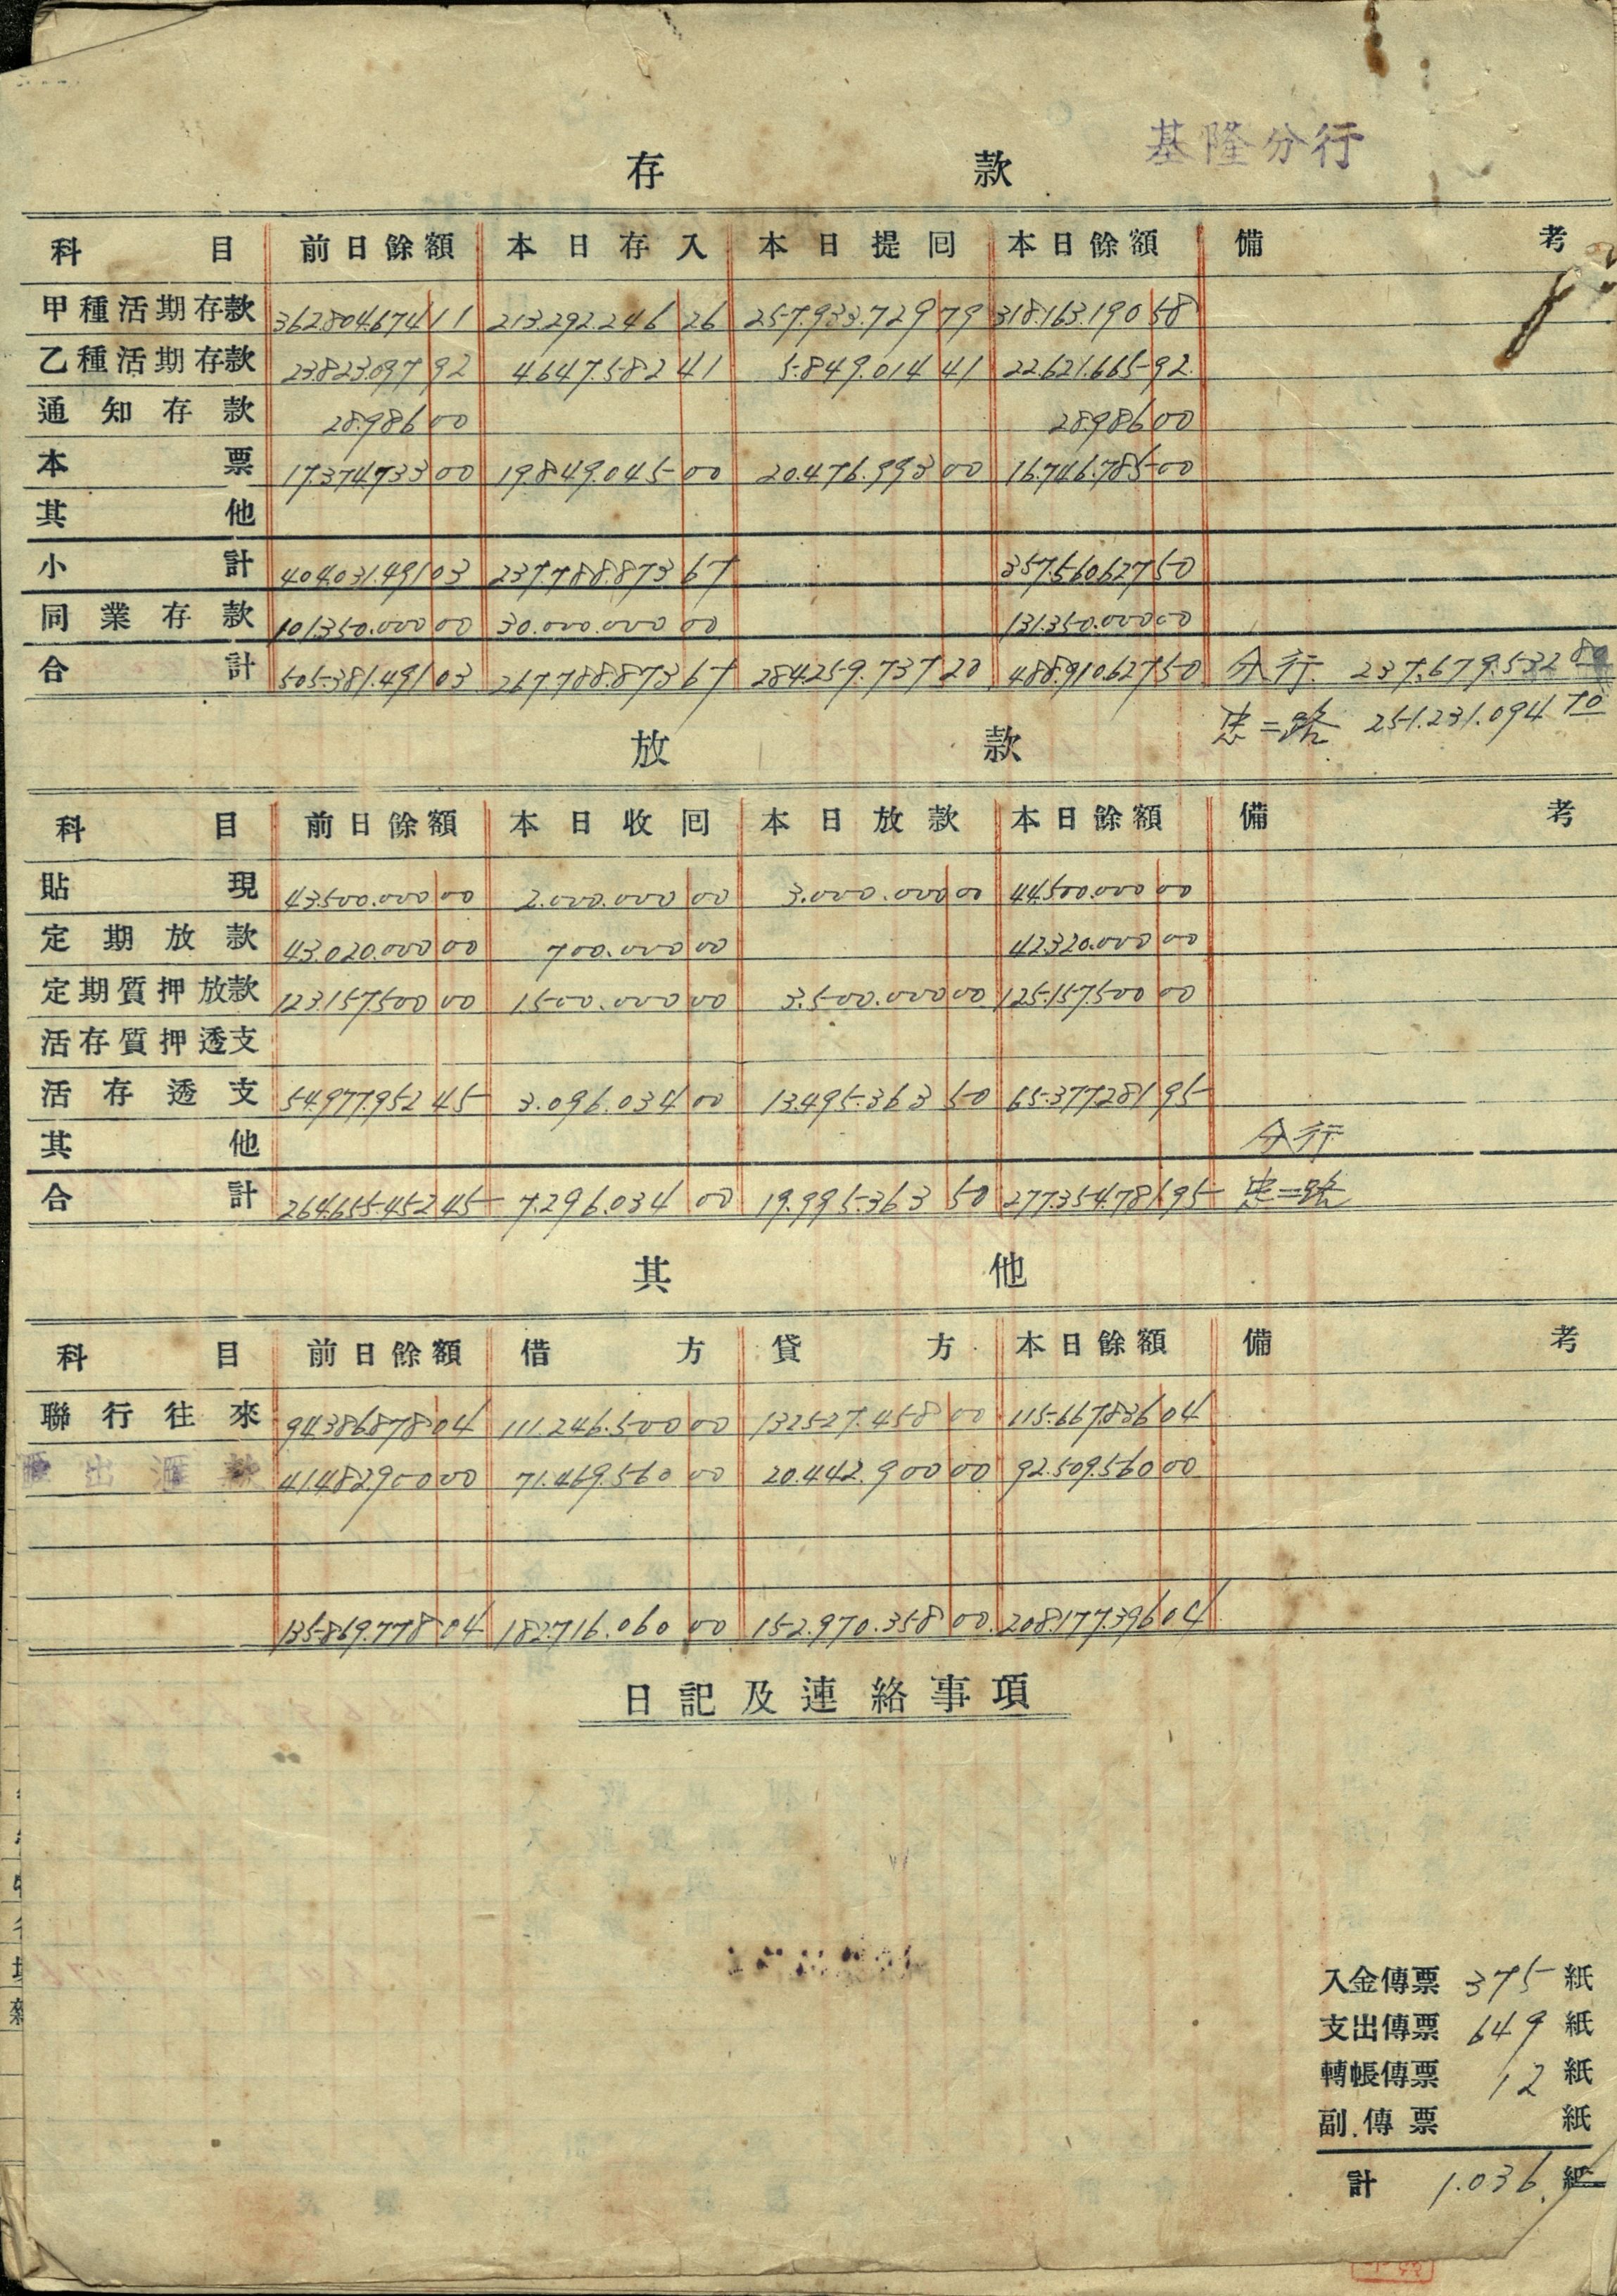 基隆分行
存款
科目 前日餘額 本日存入 本日提回 本日餘額 備考
甲種活期存款 362.804.674 11 213.292.246 26 257.933.729 79 318.163.190 58
乙種活期存款 23.823.097 92 4.647.582 41 5.849.014 41 22.621.665 92
通知存款 28.986 00 28.986 00
本票 17.374.733 00 19.849.045 00 20.476.993 00 16.746.785 00
其他
小計 404.031.491 03 237.788.873 67 357.560.627 50
同業存款 101.350.000 00 30.000.000 00 131.350.000 00
合計 505.381.491 03 267.788.873 67 284.259.737 20 488.910.627 50 分行 237.679.532 80
忠二路 251.231.094 70
放款
科目 前日餘額 本日收回 本日放款 本日餘額 備考
貼現 43.500.000 00 2.000.000 00 3.000.000 00 44.500.000 00
定期放款 43.020.000 00 700.000 00 42.320.000 00
定期質押放款 123.157.500 00 1.500.000 00 3.500.000 00 125.157.500 00
活存質押透支
活存透支 54.977.952 45 3.096.034 00 13.495.363 50 65.377.281 95
其他 分行
合計 264.655.452 45 7.296.034 00 19.995.363 50 277.354.781 95 忠二路
其他
科目 前日餘額 借方 貸方 本日餘額 備考
聯行往來 94.386.878 04 111.246.500 00 132.527.458 00 115.667.836 04
匯出匯款 41.482.900 00 71.469.560 00 20.442.900 00 92.509.560 00
135.869.778 04 182.716.060 00 152.970.358 00 208.177.396 04
日記及連絡事項
入金傳票 375 紙
支出傳票 649 紙
轉帳傳票 12 紙
副傳票 紙
計 1.036 紙